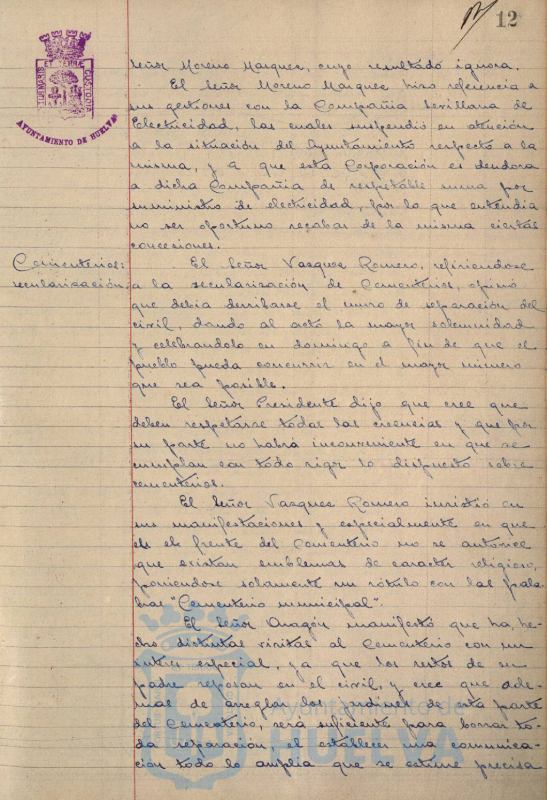 12
PORTUS MARIS ET TERRAE CUSTODIA
AYUNTAMIENTO DE HUELVA
Señor Moreno Marquez, cuyo resultado ignora.
El Señor Moreno Marquez hizo referencia a
sus gestiones con la Compañia Sevillana de
Electricidad, las cuales suspendió en atención
a la situación del Ayuntamiento respecto a la
misma, y a que esta Corporación es deudora
a dicha Compañia de respetable suma por
suministro de electricidad, por lo que entendia
no ser oportuno recabar de la misma ciertas
concesiones.
Cementerios:
secularización.
El Señor Vazquez Romero, refiriendose
a la secularización de Cementerios, opinó
que debia derribarse el muro de separación del
civil, dando al acto la mayor solemnidad
y celebrandolo en domingo a fin de que el
pueblo pueda concurrir en el mayor numero
que sea posible.
El Señor Presidente dijo que cree que
deben respetarse todas las creencias y que por
su parte no habrá inconveniente en que se
cumplan con todo rigor lo dispuesto sobre
cementerios.
El Señor Vazquez Romero insistió en
sus manifestaciones y especialmente en que
en el frente del Cementerio no se autorice
que existan emblemas de caracter religioso,
poniendose solamente un rótulo con las pala-
bras "Cementerio municipal".
El Señor Aragón manifestó que ha he-
cho distintas visitas al Cementerio con un
interes especial, ya que los restos de su
padre reposan en el civil, y cree que ade-
mas de arreglar los jardines de esta parte
del Cementerio, será suficiente para borrar to-
da separación, el establecer una comunica-
ción todo lo amplia que se estime precisa
Ayuntamiento de
HUELVA